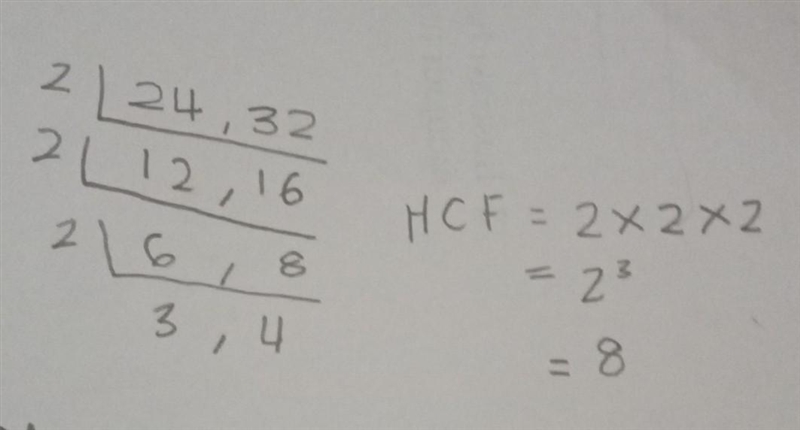 2 | 24, 32
2 | 12, 16
2 | 6, 8
3, 4
HCF = 2 × 2 × 2
= 2³
= 8